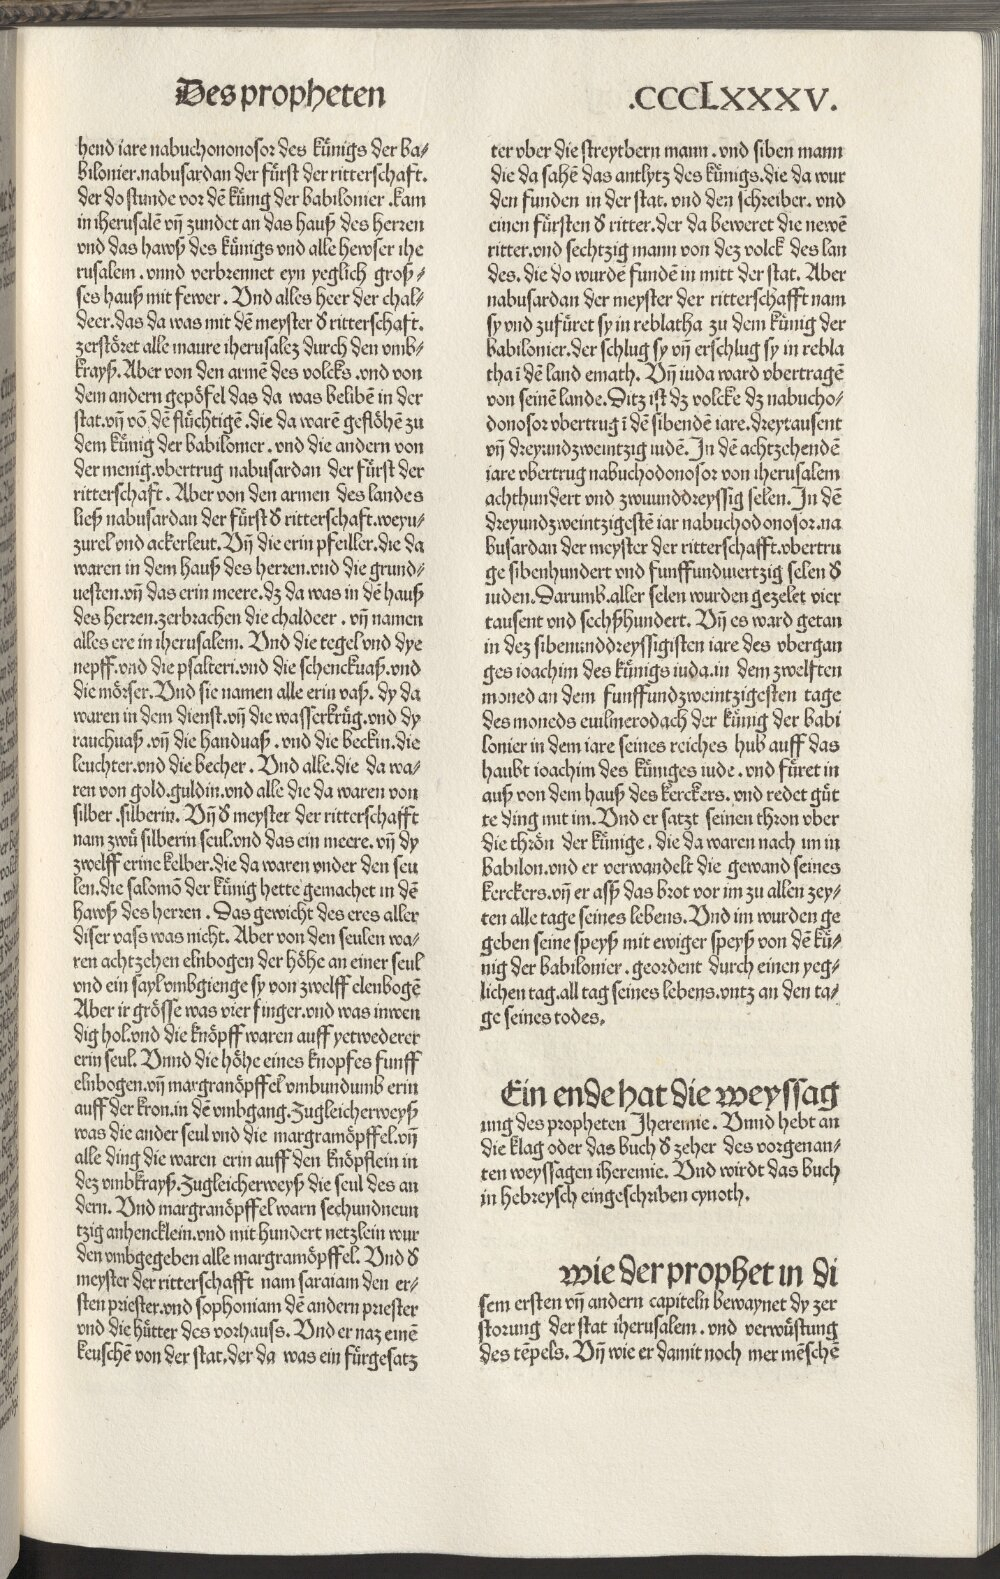 Des propheten
.CCCLXXXV.
hend iare nabuchononosor des künigs der ba⸗
bilonier.nabusardan der fürst der ritterschaft.
der do stunde vor den künig der babilonier .kam
in iherusalē vñ zundet an das hauß des herren
vnd das hawß des künigs vnd alle hewser ihe
rusalem . vnnd verbrennet eyn yeglich groß⸗
ses hauß mit fewer . Vnd alles heer der chal⸗
deer.das da was mit dē meyster d̕ ritterschaft.
zerstöret alle maure iherusalez durch den vmb⸗
krayß. Aber von den armē des volcks .vnd von
dem andern gepöfel das da was belibē in der
stat.vñ võ dē flüchtigē .die da warē geflöhē zu
dem künig der babilonier . vnd die andern von
der menig.vbertrug nabusardan der fürst der
ritterschaft . Aber von den armen des landes
ließ nabusardan der fürst d̕ ritterschaft.weyn⸗
zurel vnd ackerleut. Vñ die erin pfeiller.die da
waren in dem hauß des herren.vnd die grund⸗
uesten.vñ das erin meere.dz da was in dē hauß
des herren.zerbrachen die chaldeer . vñ namen
alles ere in iherusalem. Vnd die tegel vnd dye
nepff.vnd die psalteri.vnd die schenckuaß.vnd
die mörser. Vnd sie namen alle erin vaß. dy da
waren in dem dienst.vñ die wasserkrüg.vnd dy
rauchuaß .vñ die handuaß . vnd die beckin.die
leuchter.vnd die becher . Vnd alle.die da wa⸗
ren von gold.guldin.vnd alle die da waren von
silber .silberin. Vñ d̕ meyster der ritterschafft
nam zwů silberin seul.vnd das ein meere. vñ dy
zwelff erine kelber.die da waren vnder den seu
len.die salomõ der künig hette gemachet in dē
hawß des herren . Das gewicht des eres aller
diser vass was nicht. Aber von den seulen wa⸗
ren achtzehen elnbogen der höhe an einer seul
vnd ein sayl vmbgienge sy von zwelff elenbogē
Aber ir grösse was vier finger.vnd was inwen
dig hol.vnd die knöpff waren auff yetwederer
erin seul. Vnnd die höhe eines knopfes funff
elnbogen.vñ margranöpffel vmbundumb erin
auff der kron.in dē vmbgang.Zugleicherweyß
was die ander seul vnd die margramöpffel.vñ
alle ding die waren erin auff den knöpflein in
dez vmbkrayß.Zugleicherweyß die seul des an
dern. Vnd margranöpffel warn sechundneun
tzig anhencklein.vnd mit hundert netzlein wur
den vmbgegeben alle margramöpffel. Vnd d̕
meyster der ritterschafft nam saraiam den er⸗
sten priester.vnd sophoniam dē andern priester
vnd die hütter des vorhauss. Vnd er naz einē
keuschē von der stat.der da was ein fürgesatz
ter vber die streytbern mann . vnd siben mann
die da sahē das antlytz des künigs.die da wur
den funden in der stat. vnd den schreiber. vnd
einen fürsten d̕ ritter.der da beweret die newē
ritter.vnd sechtzig mann von dez volck des lan
des. die do wurdē fundē in mitt der stat. Aber
nabusardan der meyster der ritterschafft nam
sy vnd zufüret sy in reblatha zu dem künig der
babilonier.der schlug sy vñ erschlug sy in rebla
tha ī dē land emath. Vñ iuda ward vbertragē
von seinē lande.Ditz ist dz volcke dz nabucho⸗
donosor vbertrug ī dē sibendē iare.dreytausent
vñ dreyundzweintzig iudē. In dē achtzehendē
iare vbertrug nabuchodonosor von iherusalem
achthundert vnd zwuunddreyssig selen. In dē
dreyundzweintzigestē iar nabuchodonosor.na
busardan der meyster der ritterschafft.vbertru
ge sibenhundert vnd funffundviertzig selen d̕
iuden.Darumb.aller selen wurden gezelet vier
tausent vnd sechßhundert. Vñ es ward getan
in dez sibenunddreyssigisten iare des vbergan
ges ioachim des künigs iuda.in dem zwelften
moned an dem funffundzweintzigesten tage
des moneds euilmerodach der künig der babi
lonier in dem iare seines reiches hub auff das
haubt ioachim des küniges iude . vnd füret in
auß von dem hauß des kerckers. vnd redet güt
te ding mit im. Vnd er satzt seinen thron vber
die thrön der künige . die da waren nach im in
babilon.vnd er verwandelt die gewand seines
kerckers.vñ er aß das brot vor im zu allen zey⸗
ten alle tage seines lebens. Vnd im wurden ge
geben seine speyß mit ewiger speyß von dē kü⸗
nig der babilonier . geordent durch einen yeg⸗
lichen tag.all tag seines lebens.vntz an den ta⸗
ge seines todes.
Ein ende hat die weyssag
ung des propheten Jheremie. Vnnd hebt an
die klag oder das buch d̕ zeher des vorgenan⸗
ten weyssagen iheremie. Vnd wirdt das buch
in hebreysch eingeschriben cynoth.
wie der prophet in di
sem ersten vñ andern capiteln bewaynet dy zer
storung der stat iherusalem . vnd verwüstung
des tēpels. Vñ wie er damit noch mer mēschē